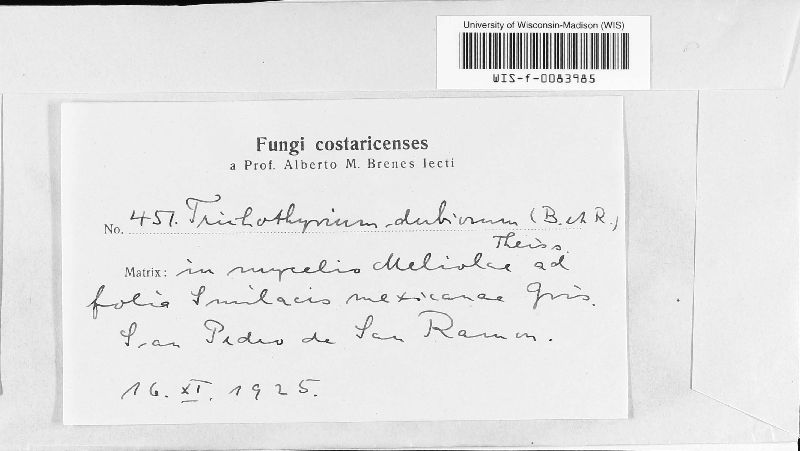 University of Wisconsin-Madison (WIS)
WIS-f-0083985
Fungi costaricenses
a Prof. Alberto M. Brenes lecti
No. 451. Trichothyrium dubiosum (B. et R.)
Theiss.
Matrix: in mycelio Meliolae ad
folia Smilacis mexicanae Gris.
San Pedro de San Ramon.
16. XI. 1925.